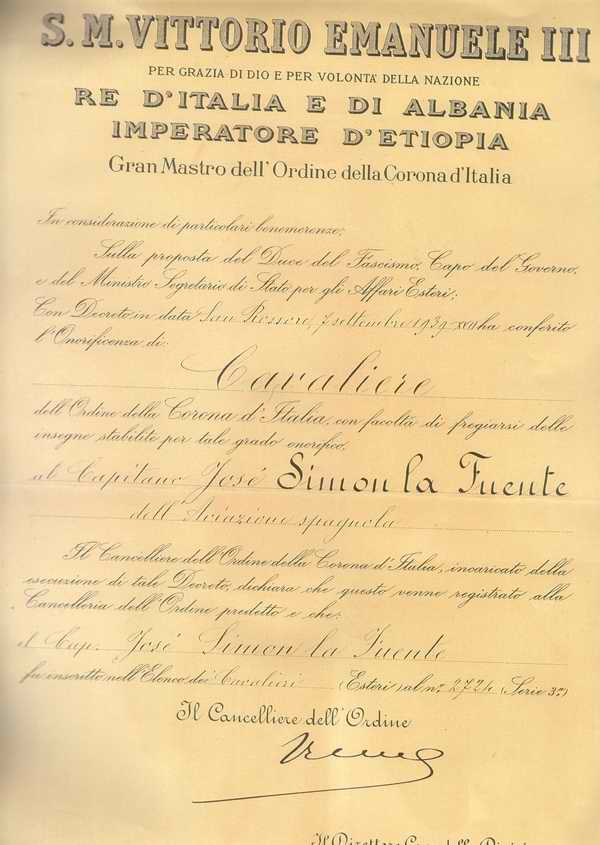 S. M. VITTORIO EMANUELE III
PER GRAZIA DI DIO E PER VOLONTÀ DELLA NAZIONE
RE D'ITALIA E DI ALBANIA
IMPERATORE D'ETIOPIA
Gran Mastro dell'Ordine della Corona d'Italia
In considerazione di particolari benemerenze;
Sulla proposta del Duce del Fascismo, Capo del Governo,
e del Ministro Segretario di Stato per gli Affari Esteri;
Con Decreto in data San Rossore, 7 settembre 1939-XVII ha conferito
l'Onorificenza di:
Cavaliere
dell'Ordine della Corona d'Italia, con facoltà di fregiarsi delle
insegne stabilite per tale grado onorifico,
al Capitano José Simon la Fuente
dell'Aviazione spagnola
Il Cancelliere dell'Ordine della Corona d'Italia, incaricato della
esecuzione di tale Decreto, dichiara che questo venne registrato alla
Cancelleria dell'Ordine predetto e che:
il Cap. José Simon la Fuente
fu inscritto nell'Elenco dei Cavalieri (Esteri) al n.° 2724 (Serie 3a)
Il Cancelliere dell'Ordine
Il Direttore Capo della